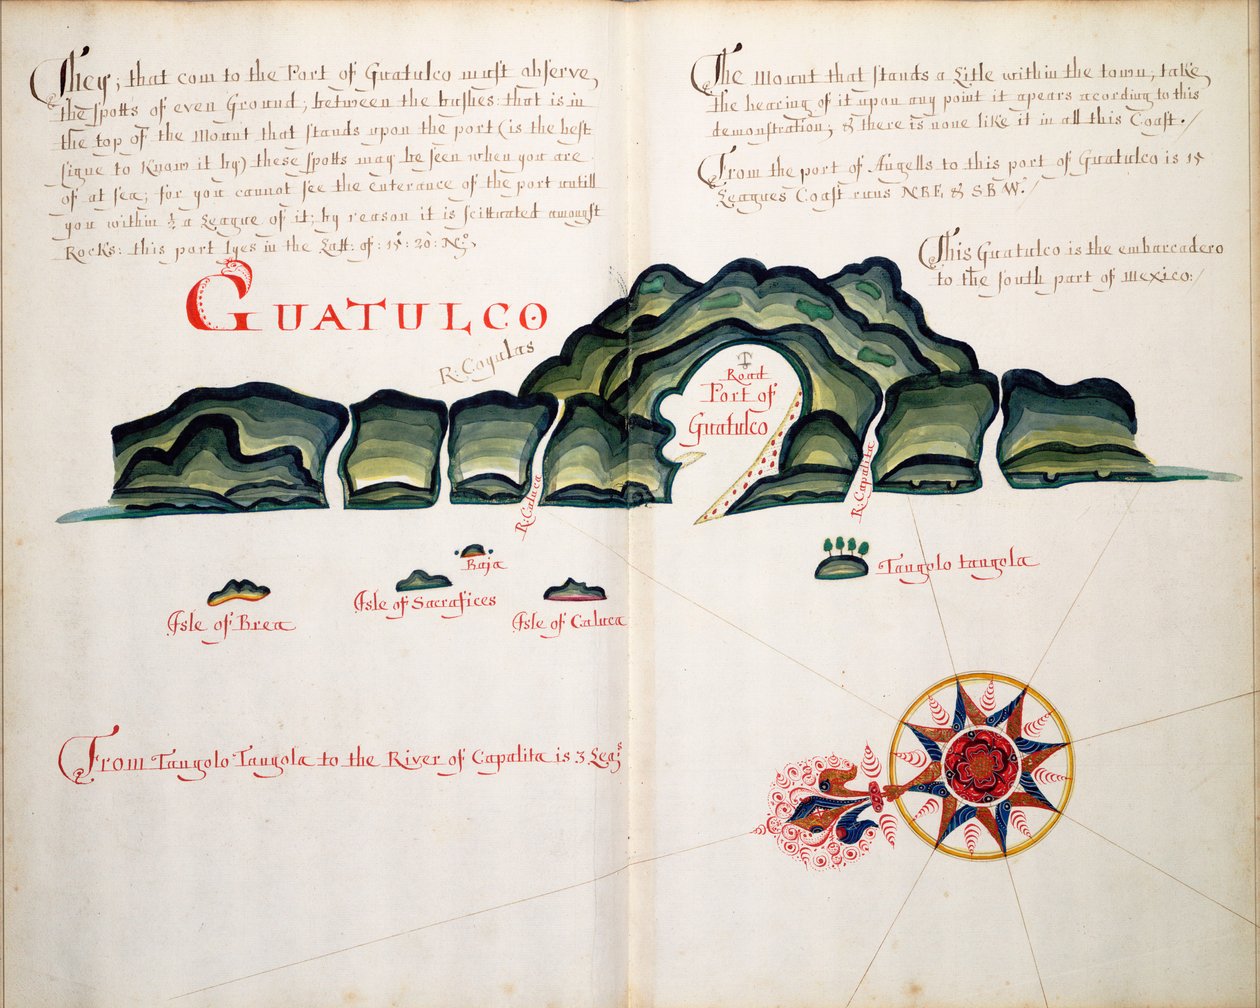 They; that com to the Port of Guatulco must observe
the spotts of even Ground; between the bushes: that is in
the top of the Mount that stands upon the port (is the best
signe to Know it by) these spotts may be seen when you are
of at sea; for you cannot see the enterance of the port untill
you within ½ a League of it; by reason it is scittuated amongst
Rocks: this part lyes in the Latt: of: 15: 20: No.
The Mount that stands a Litle within the town; take
the bearing of it upon any point it apears acording to this
demonstration; & there is none like it in all this Coast./
From the port of Angells to this port of Guatulco is 15
Leagues Coast runs NBE & SBW:/
This Guatulco is the embarcadero
to the south part of Mexico:/
GUATULCO
R: Coyulas
Road
Port of
Guatulco
R: Caluca
R: Capalita
Baja
Isle of Brea
Isle of Sacrafices
Isle of Caluca
Tangolo tangola
From Tangolo Tangola to the River of Capalita is 3 Leags